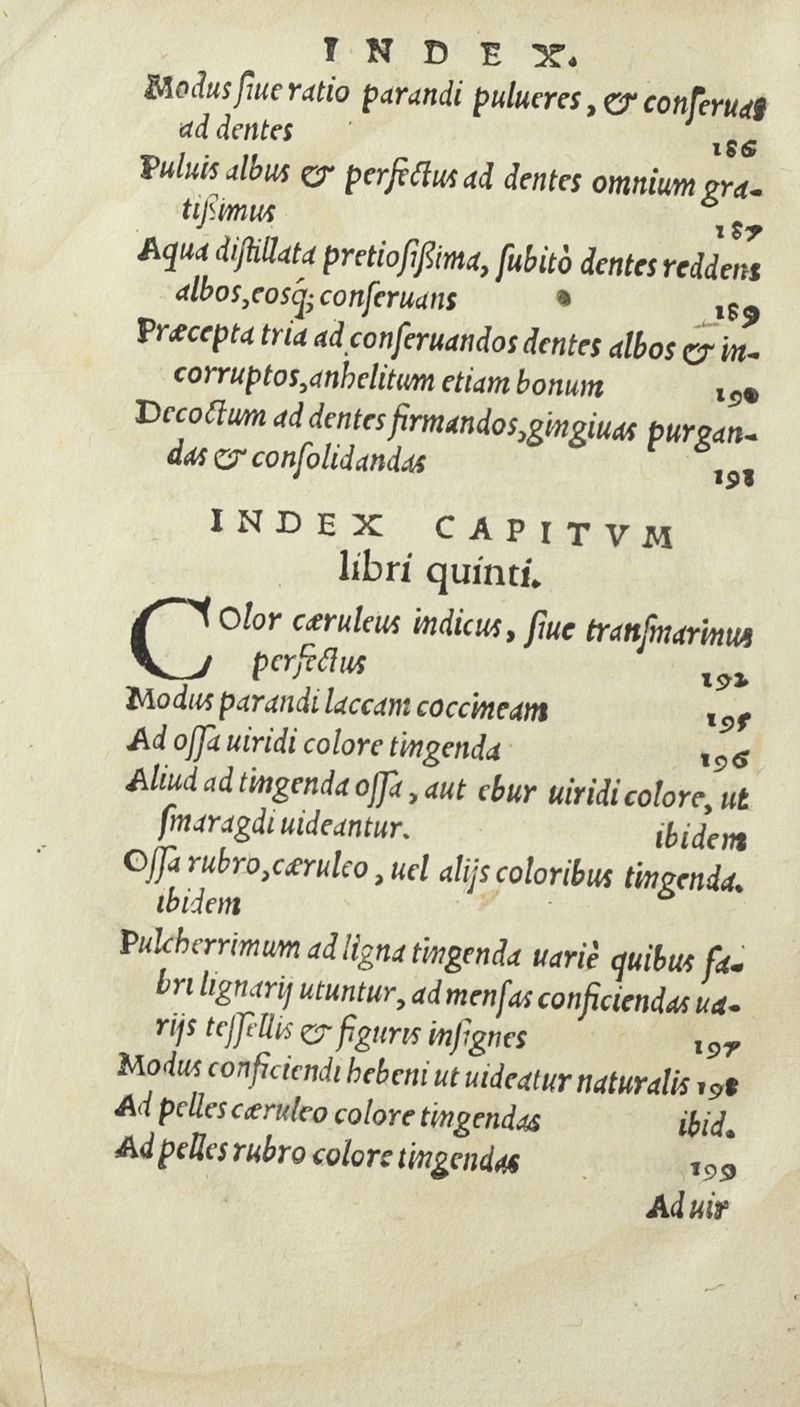 INDEX.
Modus ſiue ratio parandi pulueres, & conſeruas
ad dentes 186
Puluis albus & perfectus ad dentes omnium gra-
tiſſimus 187
Aqua diſtillata pretioſiſſima, ſubitò dentes reddens
albos, eosq; conſeruans 189
Præcepta tria ad conſeruandos dentes albos & in-
corruptos, anhelitum etiam bonum 190
Decoctum ad dentes firmandos, gingiuas purgan-
das & conſolidandas 191
INDEX CAPITVM
libri quinti.
COlor cæruleus indicus, ſiue tranſmarinus
perfectus 192
Modus parandi laccam coccineam 195
Ad oſſa uiridi colore tingenda 196
Aliud ad tingenda oſſa, aut ebur uiridi colore, ut
ſmaragdi uideantur. ibidem
Oſſa rubro, cæruleo, uel alijs coloribus tingenda.
ibidem
Pulcherrimum ad ligna tingenda uariè quibus fa-
bri lignarij utuntur, ad menſas conficiendas ua-
rijs teſſellis & figuris inſignes 197
Modus conficiendi hebeni ut uideatur naturalis 198
Ad pelles cæruleo colore tingendas ibid.
Ad pelles rubro colore tingendas 199
Ad uir